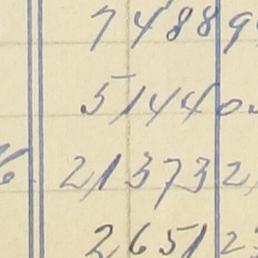 7488 9
5144 0
6 21373 2
2651 23